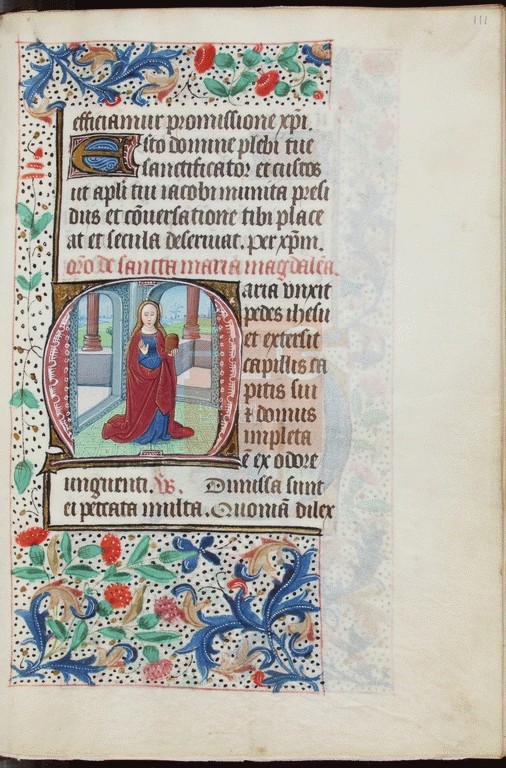 111
efficiamur promissione xpi.
Esto domine plebi tue
sanctificator et custos
ut apli tui iacobi munita presi
diis et cōuersatione tibi place
at et secula deseruiat. per xpm.
oro de sancta maria magdalena.
Maria vnxit
pedes ihesu
et extersit
capillis ca
pitis sui
et domus
impleta
e ex odore
unguenti. Vs. Dimissa sunt
ei peccata multa. Quoniā dilex